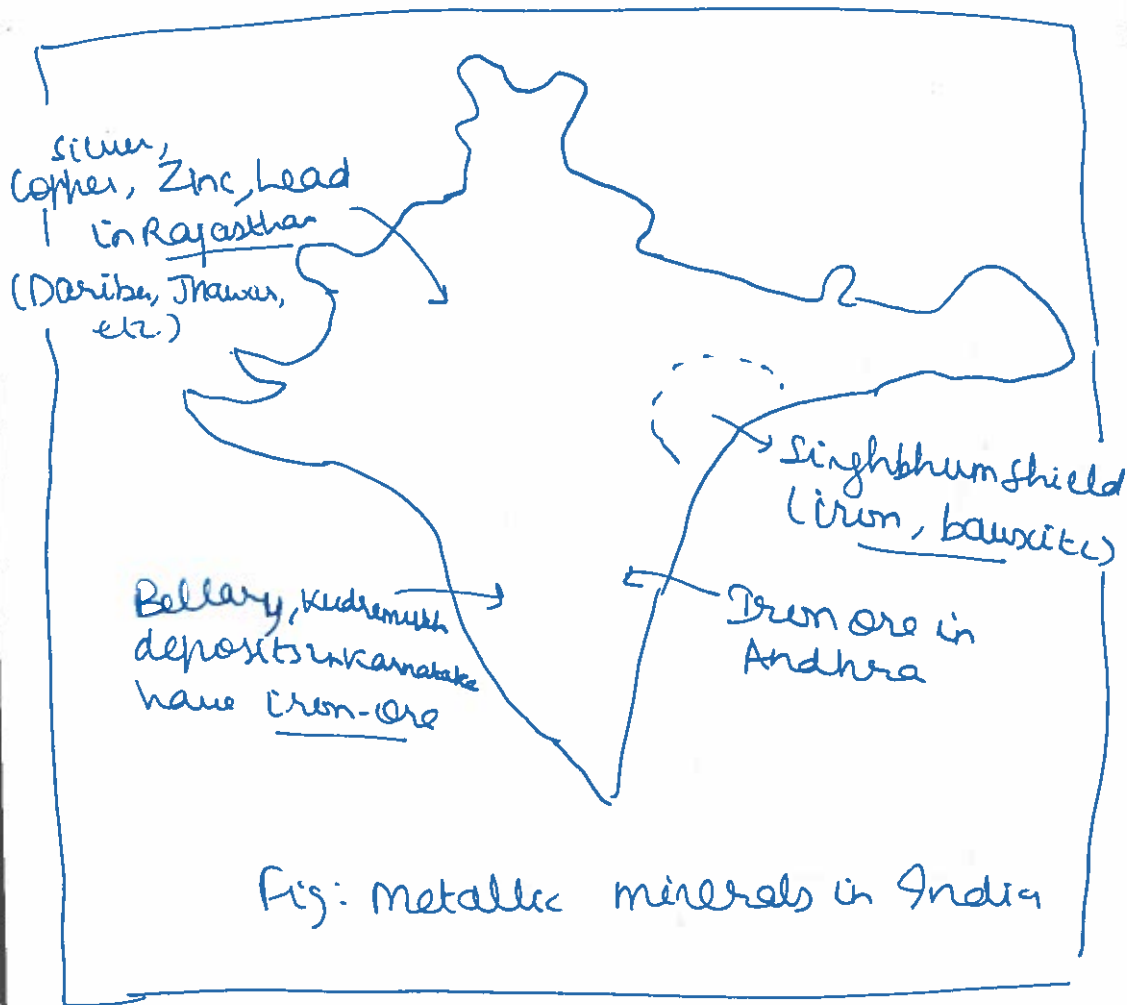 Silver,
Copper, Zinc, Lead
in Rajasthan
(Dariba, Jhawar,
etc.)
Singhbhum Shield
(iron, bauxite)
Bellary, Kudremukh
deposits in Karnataka
have iron-ore
Iron ore in
Andhra
Fig: Metallic minerals in India